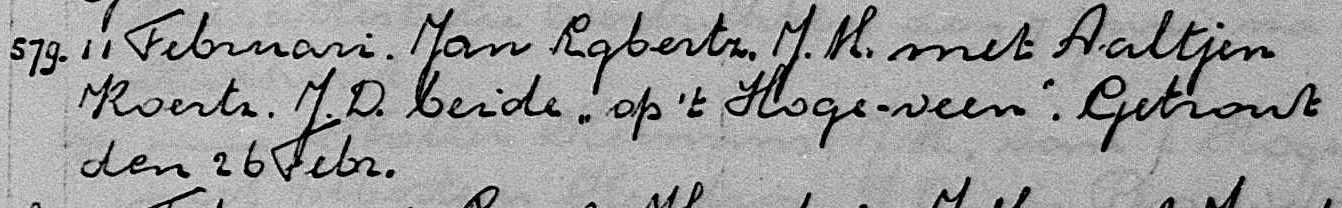 579. 11 Februari. Jan Egbertz. J.M. met Aaltjen
Koertz. J.D. beide „op 't Hoge-veen“. Getrout
den 26 Febr.